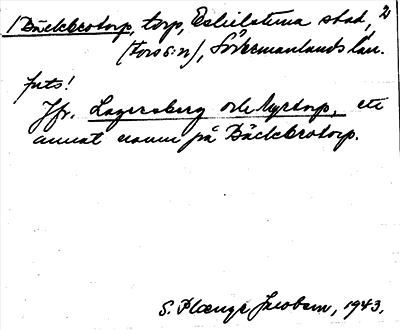 1 Bäckbrotorp, torp, Eskilstuna stad, 2
(Fors s:n), Södermanlands län.
Jfr. Lagersberg och Nyrtorp, ett
annat namn på Bäckbrotorp.
S. Plænge Jacobson, 1943.